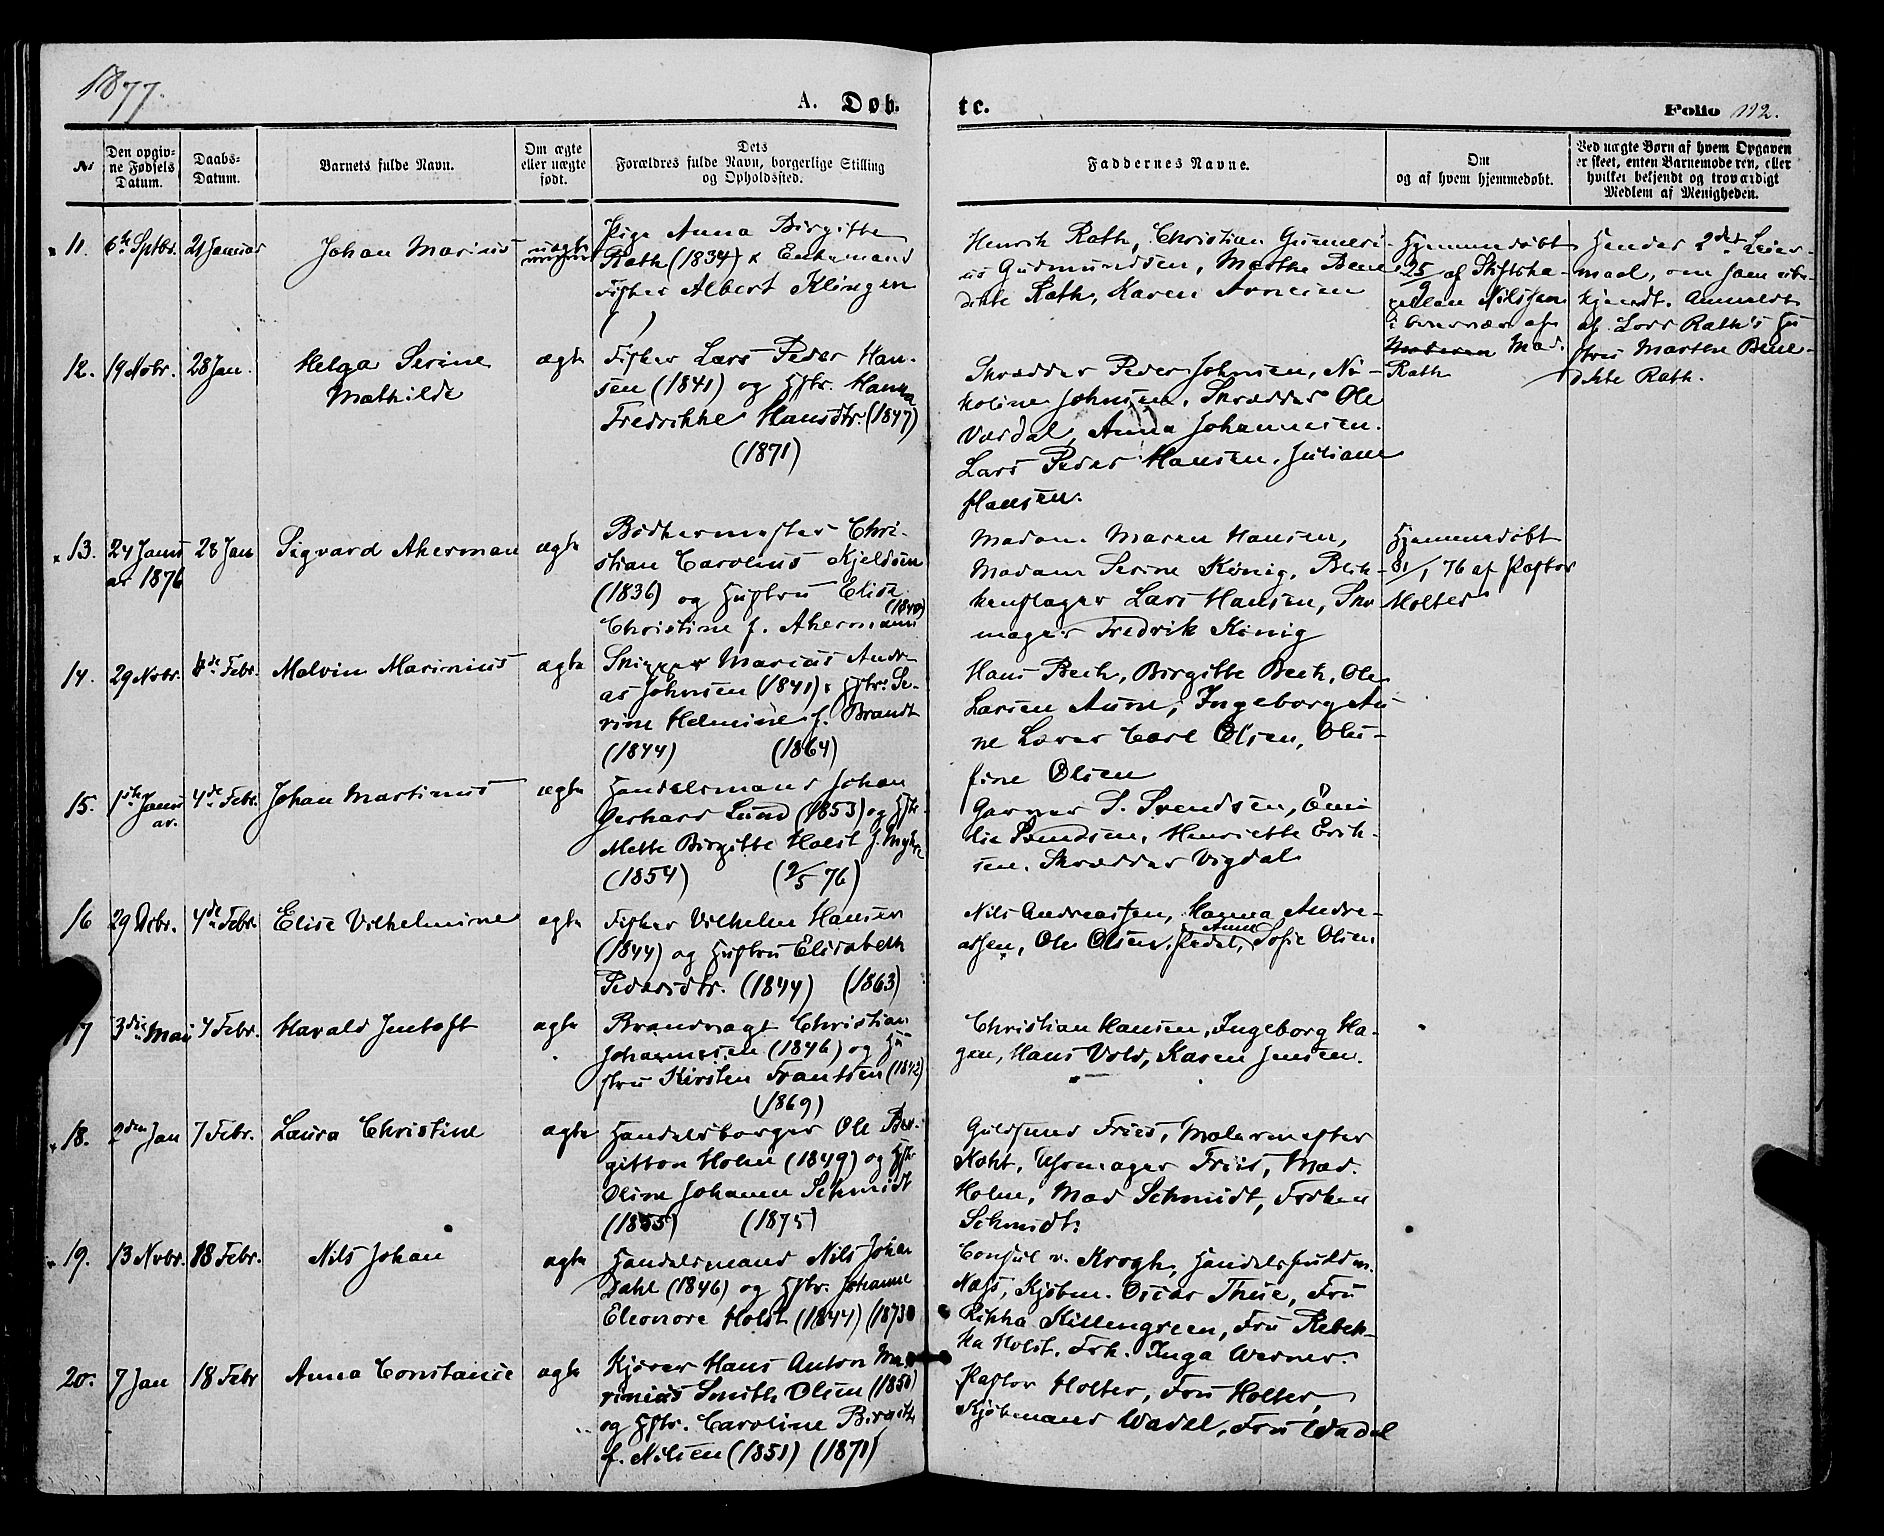 1877.
A. Døb.
te.
Folio 112.
No
Den opgiv-
ne Fødsels
Datum.
Daabs-
Datum.
Barnets fulde Navn.
Om ægte
eller uægte
født.
Dets
Forældres fulde Navn, borgerlige Stilling
og Opholdssted.
Faddernes Navne.
Om
og af hvem hjemmedøbt.
Ved uægte Børn af hvem Opgaven
er skeet, enten Barnemoderen, eller
hvilket bekjendt og troværdigt
Medlem af Menigheden.
11.
6te Septbr.
21 Januar
Johan Marius
uægte
Pige Anna Birgitte
Rath (1834) & Enkemand
Fisker Albert Klingen
( )
Henrik Rath, Christian Gunneri-
us Gudmundsen, Marthe Bene
dikte Rath, Karen Arnesen
Hjemmedøbt
25/9 af Stiftska-
pellan Nilssen
i Overvær af
Mad.
Rath
Hendes 2det Leier-
maal, om ham ube-
kjendt. Anmeldt
af Lars Rath's Hu
stru Marthe Bene-
dikte Rath.
12.
19 Nobr.
28 Jan.
Helga Serine
Mathilde
ægte
Fisker Lars Peder Han-
sen (1841) og Hstr. Hanna
Fredrikke Hansdtr. (1847)
(1871)
Skrædder Peder Johnsen, Ni-
koline Johnsen, Skrædder Ole
Værdal, Anna Johannesen.
Lars Peder Hansen, Juliane
Hansen.
13.
24 Janu
ar 1876
28 Jan
Sigvard Akerman
ægte
Bødkermester Chri-
stian Carolius Kjeldsen
(1836) og Hustru Elise
(1840)
Christine f. Akermann
Madam Maren Hansen,
Madam Serine König, Blik-
kenslager Lars Hansen, Sko
mager Fredrik König
Hjemmedøbt
31/1 76 af Pastor
Holter
14.
29 Nobr.
4de Febr.
Malvin Marinius
ægte
Skipper Marius Andre-
as Johnsen (1841) & Hstr. Se-
rine Helmine f. Brandt
(1844) (1864)
Hans Beck, Birgitte Beck, Ole
Larsen Aune, Ingeborg Au-
ne Lærer Carl Olsen, Olu-
fine Olsen
15.
1ste Janu
ar.
4de Febr.
Johan Martinus
ægte
Handelsmand Johan
Gerhard Lund (1853) og Hstr.
Mette Birgitte Holst f. Myhre
(1854) (2/5 76)
Garver S. Svendsen, Emi
lie Svendsen, Henriette Erik-
sen, Skrædder Vigdal
16
29 Debr.
4de Febr.
Elise Vilhelmine
ægte
Fisker Vilhelm Hansen
(1844) og Hustru Elisabeth
Pedersdtr. (1844) (1863)
Nils Andreassen, Hanna Andre-
assen, Ole Olsen, Anne Sofie Olsen
17
3die Mai
4 Febr.
Harald Jentoft
ægte
Brandvagt Christian
Johannesen (1846) og Hu-
stru Kirsten Frantsen (1842)
(1869)
Christian Hansen, Ingeborg Ha-
gen, Hans Vold, Karen Jensen.
18.
2den Jan
7 Febr.
Laura Christine
ægte
Handelsborger Ole Bir-
gitton Holm (1849) og Hstr
Oline Johanne Schmidt
(1855) (1875)
Guldsmed Friis, Malermester
Koht, Uhrmager Friis, Mad.
Holm, Mad Schmidt, Frøken
Schmidt.
19.
13 Nobr.
18 Febr.
Nils Johan
ægte
Handelsmand Nils Johan
Dahl (1846) og Hstr. Johanne
Eleonore Holst (1844) (1873
Consul v. Krogh, Handelsfuldm.
Næss, Kjøbm. Oscar Thue, Fru
Rikka Killengreen, Fru Rebek-
ka Holst, Frk. Inga Werner.
20.
7 Jan
18 Febr
Anna Constance
ægte
Kjører Hans Anton Ma-
rinius Smith Olsen (1850)
og Hstr. Caroline Birgitte
f. Nilsen (1851) (1871)
Pastor Holter, Fru Holter,
Kjøbmand Wadel, Fru Wadel